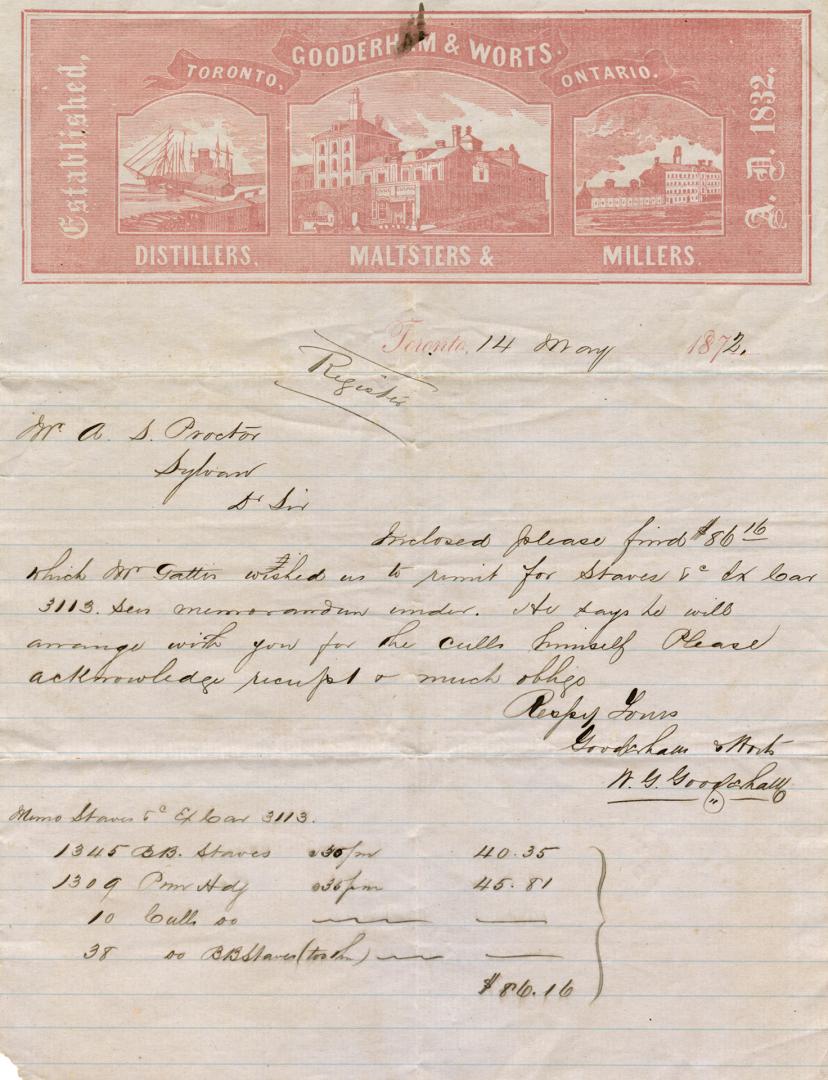 GOODERHAM & WORTS.
TORONTO, ONTARIO.
Established, A.D. 1832.
DISTILLERS, MALTSTERS & MILLERS.
Toronto, 14 May 1872.
Register
Mr A. S. Proctor
Sylvan
Dr Sir
Inclosed please find $86 16
which Mr wished us to remit for Staves &c Ex Car
3113. memorandum under. He says he will
arrange with you for the culls himself Please
acknowledge receipt & much oblige
Respy Yours
Gooderham & Worts
W. G. Gooderham
Memo Staves &c Ex Car 3113.
1345 BB. Staves 30 pm 40.35
1309 Pun Hdg 35 pm 45.81
10 Culls do — —
38 do BB Staves — —
$86.16